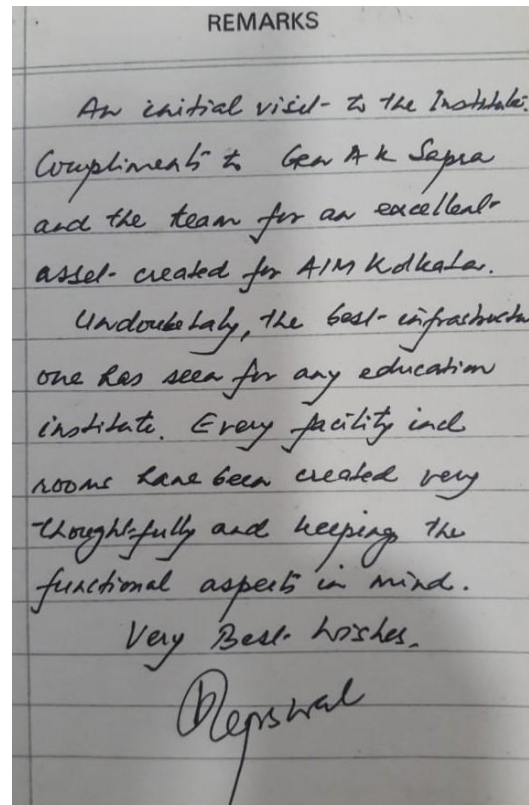 REMARKS
An initial visit to the Institute.
Compliments to Gen A K Sapra
and the team for an excellent
asset created for AIM Kolkata.
Undoubetaly, the best infrastructu
one has seen for any education
institute. Every facility incl
rooms have been created very
thoughtfully and keeping the
functional aspects in mind.
Very Best Wishes.